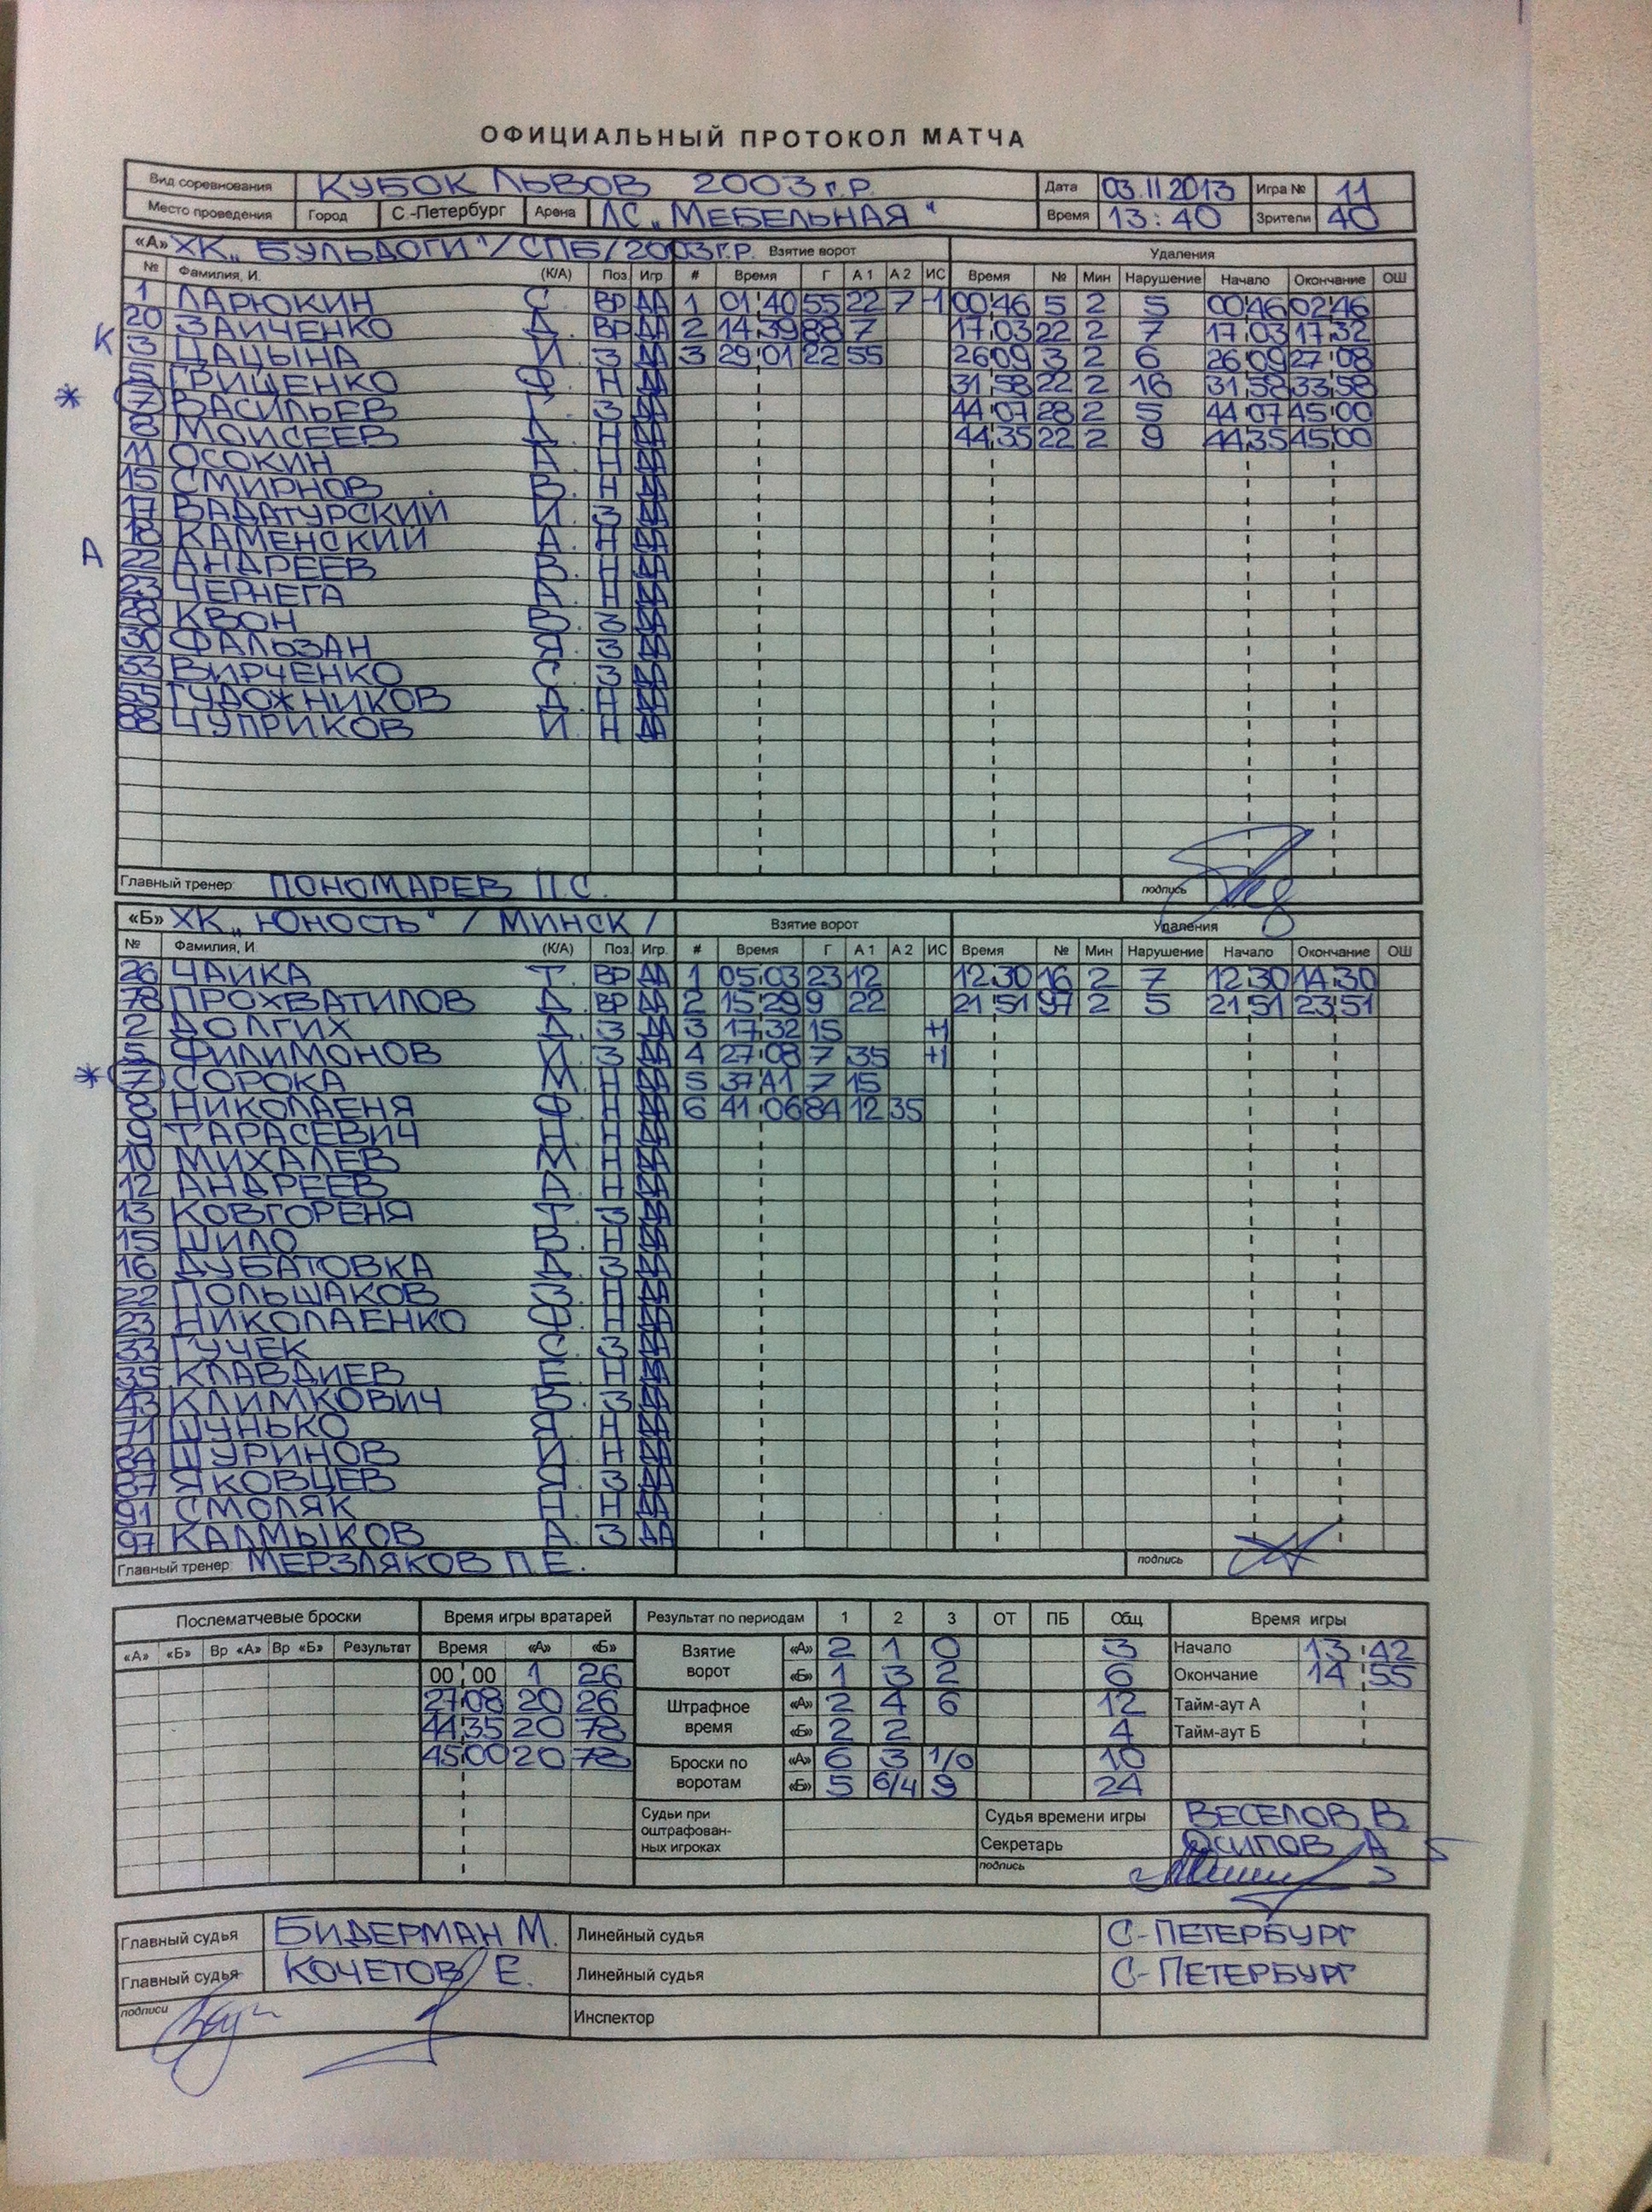 ОФИЦИАЛЬНЫЙ ПРОТОКОЛ МАТЧА
Вид соревнования КУБОК ЛЬВОВ 2003 г.р. Дата 03.11 2013 Игра № 11
Место проведения Город С.-Петербург Арена ЛС „МЕБЕЛЬНАЯ" Время 13:40 Зрители 40
«А» ХК „БУЛЬДОГИ"/СПБ/2003г.р. Взятие ворот Удаления
№ Фамилия, И. (К/А) Поз Игр # Время Г А1 А2 ИС Время № Мин Нарушение Начало Окончание ОШ
1 ЛАРЮКИН С. ВР ДА 1 01:40 55 22 7 -1 00:46 5 2 5 00:46 02:46
20 ЗАЙЧЕНКО Д. ВР ДА 2 14:39 88 7 17:03 22 2 7 17:03 17:32
К 3 ЦАЦЫНА И. З ДА 3 29:01 22 55 26:09 3 2 6 26:09 27:08
5 ГРИЦЕНКО Ф. Н ДА 31:58 22 2 16 31:58 33:58
* 7 ВАСИЛЬЕВ Г. З ДА 44:07 28 2 5 44:07 45:00
8 МОИСЕЕВ Д. Н ДА 44:35 22 2 9 44:35 45:00
11 ОСОКИН А. Н ДА
15 СМИРНОВ В. Н ДА
17 ВАДАТУРСКИЙ И. З ДА
18 КАМЕНСКИЙ А. Н ДА
А 22 АНДРЕЕВ В. Н ДА
23 ЧЕРНЕГА А. Н ДА
28 КВОН В. З ДА
30 ФАЛЬЗАН Я. З ДА
33 ВИРЧЕНКО С. З ДА
55 ГУДОЖНИКОВ Д. Н ДА
88 ЧУПРИКОВ И. Н ДА
Главный тренер: ПОНОМАРЕВ П.С. подпись
«Б» ХК „ЮНОСТЬ" / МИНСК / Взятие ворот Удаления
№ Фамилия, И. (К/А) Поз Игр. # Время Г А1 А2 ИС Время № Мин Нарушение Начало Окончание ОШ
26 ЧАЙКА Т. ВР ДА 1 05:03 23 12 12:30 16 2 7 12:30 14:30
78 ПРОХВАТИЛОВ Д. ВР ДА 2 15:29 9 22 21:51 97 2 5 21:51 23:51
2 ДОЛГИХ Д. З ДА 3 17:32 15 +1
5 ФИЛИМОНОВ И. З ДА 4 27:08 7 35 +1
* 7 СОРОКА М. Н ДА 5 37:41 7 15
8 НИКОЛАЕНЯ Ф. Н ДА 6 41:06 84 12 35
9 ТАРАСЕВИЧ Н. Н ДА
10 МИХАЛЕВ М. Н ДА
12 АНДРЕЕВ А. Н ДА
13 КОВГОРЕНЯ Т. З ДА
15 ШИЛО В. Н ДА
16 ДУБАТОВКА Д. З ДА
22 ПОЛЬШАКОВ З. Н ДА
23 НИКОЛАЕНКО Ф. Н ДА
33 ГУЧЕК С. З ДА
35 КЛАВДИЕВ Е. Н ДА
43 КЛИМКОВИЧ В. З ДА
71 ШУНЬКО Я. Н ДА
84 ШУРИНОВ И. Н ДА
87 ЯКОВЦЕВ Я. З ДА
91 СМОЛЯК Н. Н ДА
97 КАЛМЫКОВ А. З ДА
Главный тренер: МЕРЗЛЯКОВ П.Е. подпись
Послематчевые броски Время игры вратарей Результат по периодам 1 2 3 ОТ ПБ Общ Время игры
«А» «Б» Вр «А» Вр «Б» Результат Время «А» «Б» Взятие ворот «А» 2 1 0 3 Начало 13:42
00:00 1 26 «Б» 1 3 2 6 Окончание 14:55
27:08 20 26 Штрафное время «А» 2 4 6 12 Тайм-аут А
44:35 20 78 «Б» 2 2 4 Тайм-аут Б
45:00 20 78 Броски по воротам «А» 6 3 1/0 10
«Б» 5 6/4 9 24
Судьи при оштрафован-ных игроках Судья времени игры ВЕСЕЛОВ В.
Секретарь ОСИПОВ А
подпись
Главный судья БИДЕРМАН М. Линейный судья С-ПЕТЕРБУРГ
Главный судья КОЧЕТОВ Е. Линейный судья С-ПЕТЕРБУРГ
подписи Инспектор